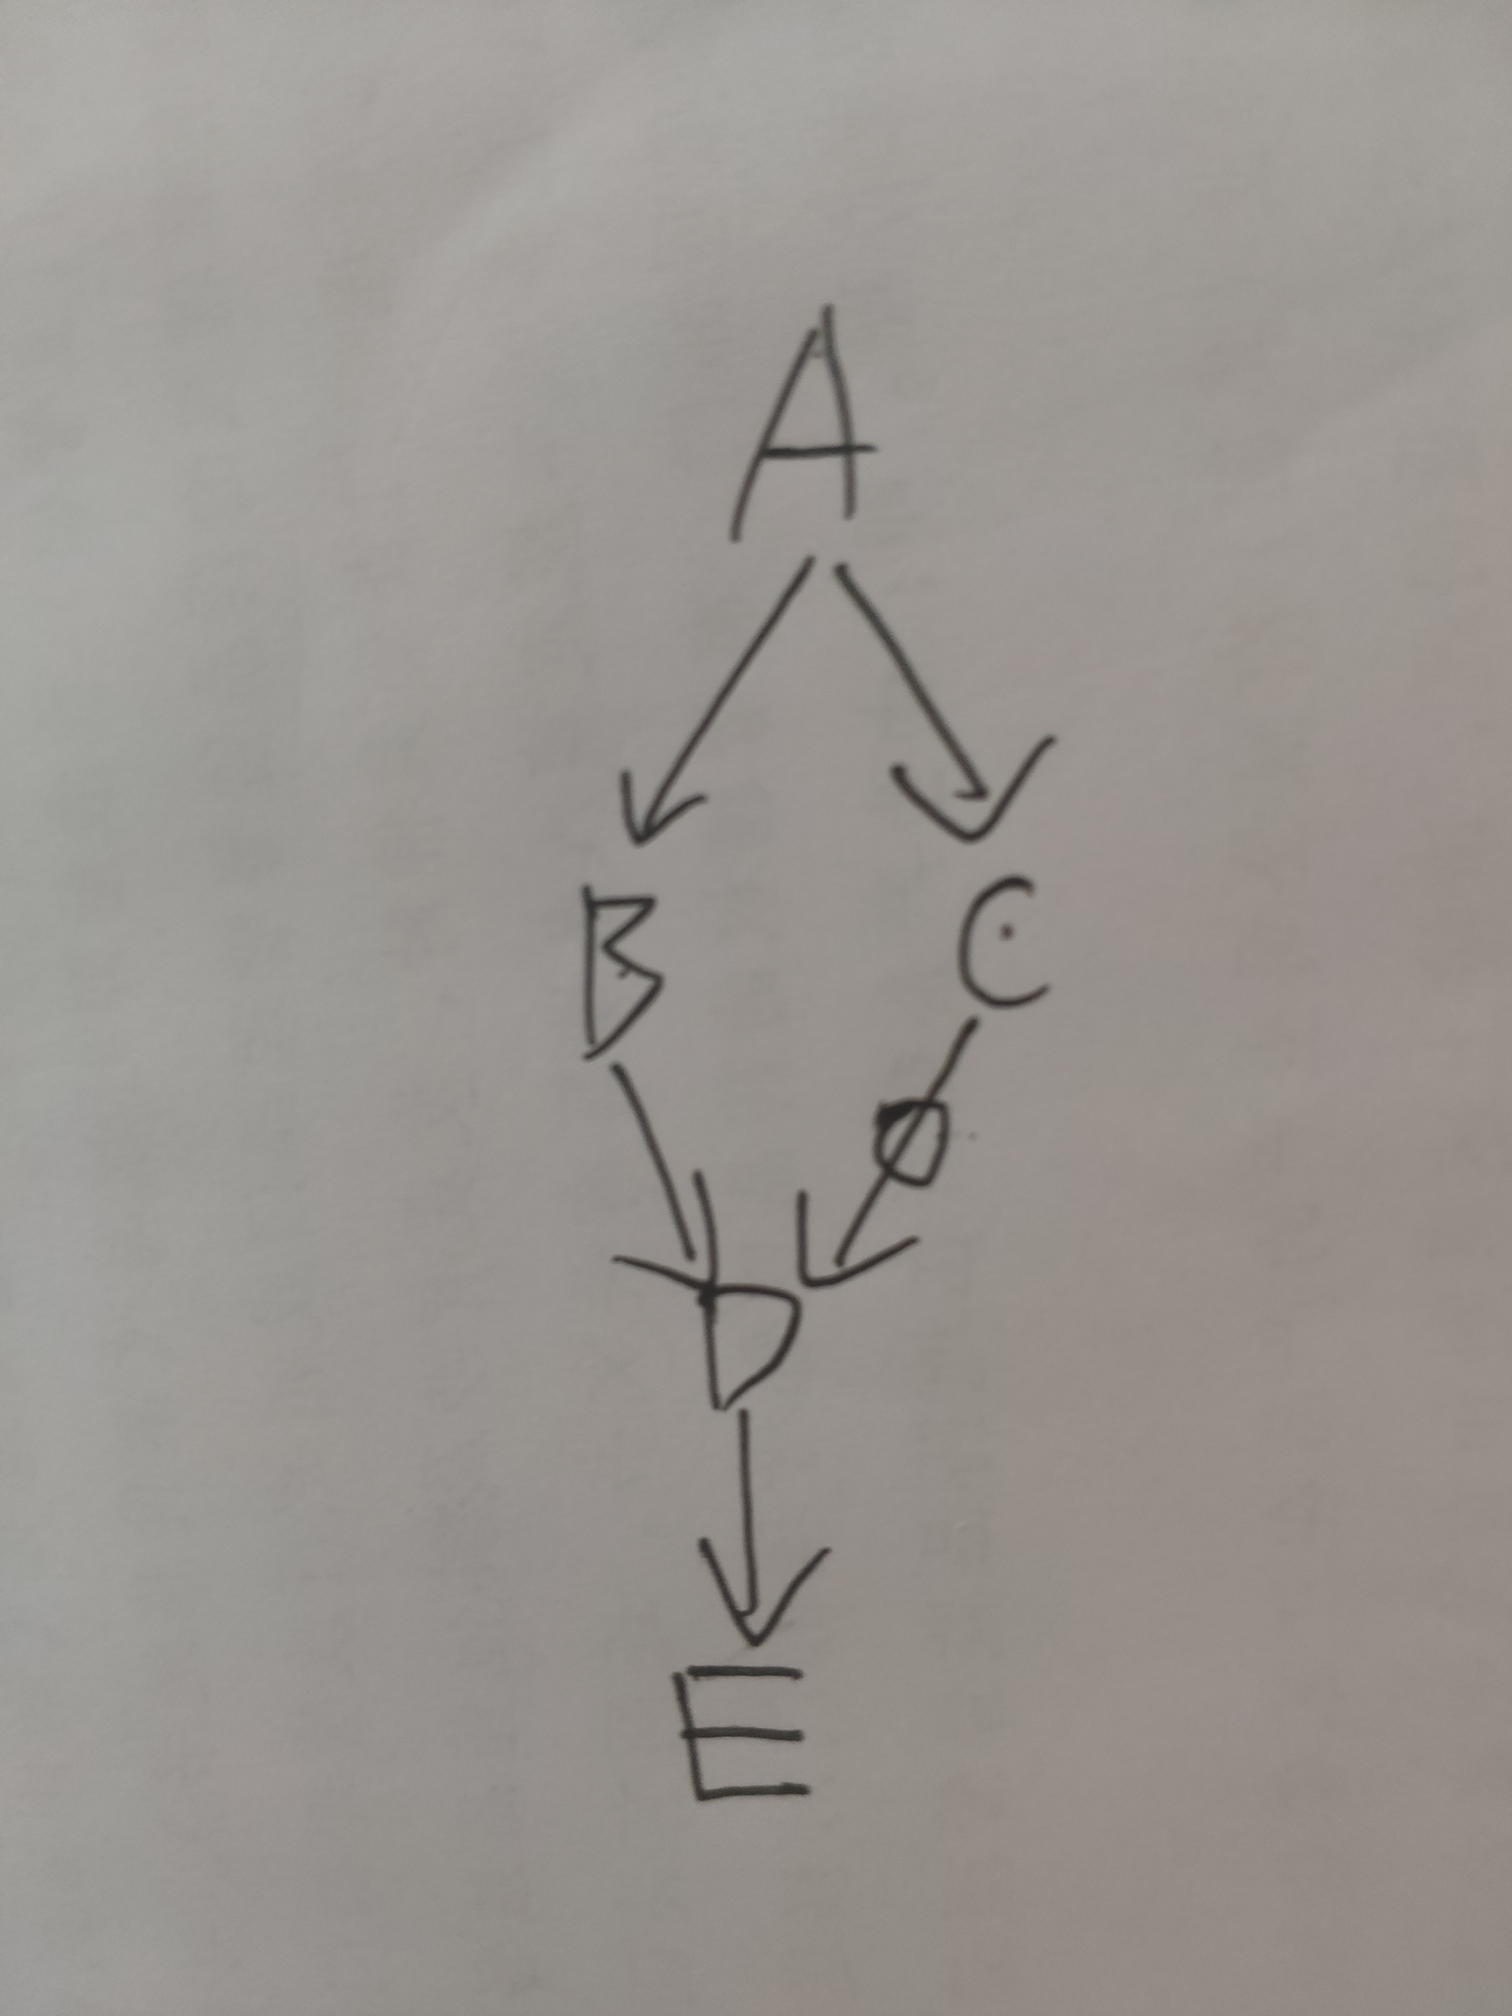 A
B C
D
E